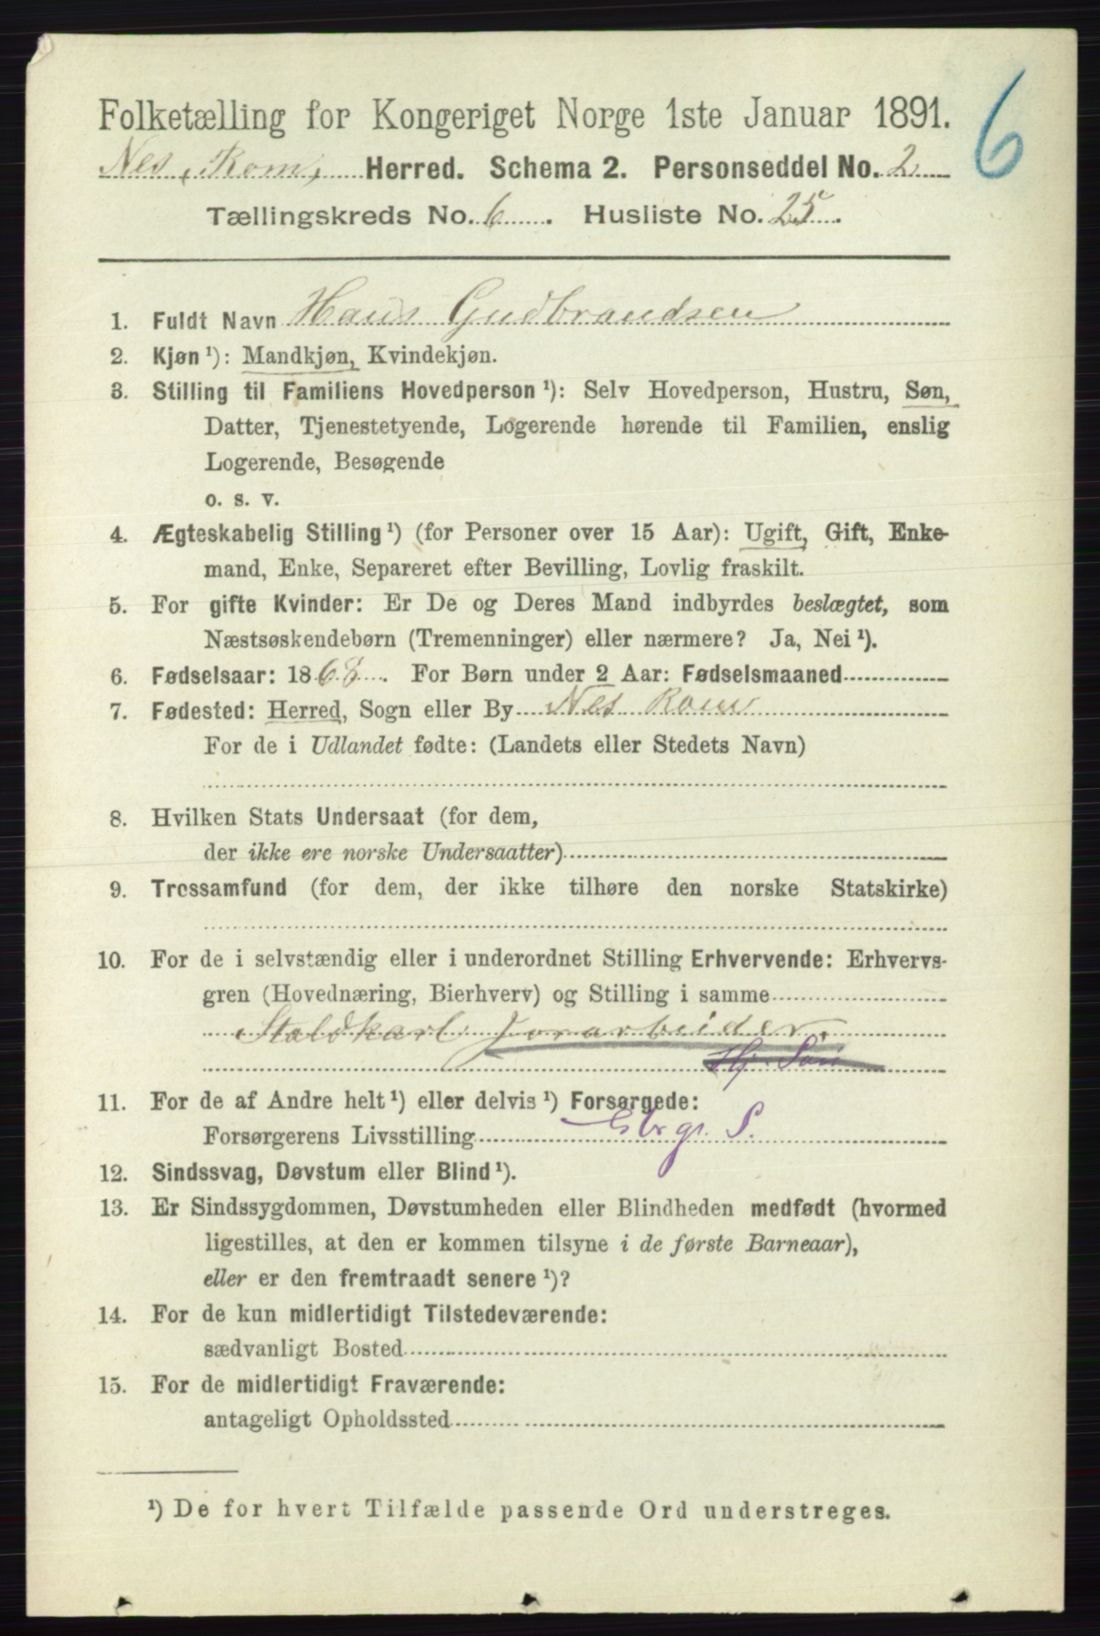 6
Folketælling for Kongeriget Norge 1ste Januar 1891.
Nes, Rom, Herred. Schema 2. Personseddel No. 2
Tællingskreds No. 6 . Husliste No. 25 .
1. Fuldt Navn Hans Gudbrandsen
2. Kjøn¹): Mandkjøn, Kvindekjøn.
3. Stilling til Familiens Hovedperson¹): Selv Hovedperson, Hustru, Søn,
Datter, Tjenestetyende, Logerende hørende til Familien, enslig
Logerende, Besøgende
o. s. v.
4. Ægteskabelig Stilling¹) (for Personer over 15 Aar): Ugift, Gift, Enke-
mand, Enke, Separeret efter Bevilling, Lovlig fraskilt.
5. For gifte Kvinder: Er De og Deres Mand indbyrdes beslægtet, som
Næstsøskendebørn (Tremenninger) eller nærmere? Ja, Nei¹).
6. Fødselsaar: 1868. For Børn under 2 Aar: Fødselsmaaned
7. Fødested: Herred, Sogn eller By Nes Rom
For de i Udlandet fødte: (Landets eller Stedets Navn)
8. Hvilken Stats Undersaat (for dem,
der ikke ere norske Undersaatter)
9. Trossamfund (for dem, der ikke tilhøre den norske Statskirke)
10. For de i selvstændig eller i underordnet Stilling Erhvervende: Erhvervs-
gren (Hovednæring, Bierhverv) og Stilling i samme
Staldkarl jorarbeider.
Hj. Søn
11. For de af Andre helt¹) eller delvis¹) Forsørgede:
Forsørgerens Livsstilling Gbrgr. S.
12. Sindssvag, Døvstum eller Blind¹).
13. Er Sindssygdommen, Døvstumheden eller Blindheden medfødt (hvormed
ligestilles, at den er kommen tilsyne i de første Barneaar),
eller er den fremtraadt senere¹)?
14. For de kun midlertidigt Tilstedeværende:
sædvanligt Bosted
15. For de midlertidigt Fraværende:
antageligt Opholdssted
¹) De for hvert Tilfælde passende Ord understreges.